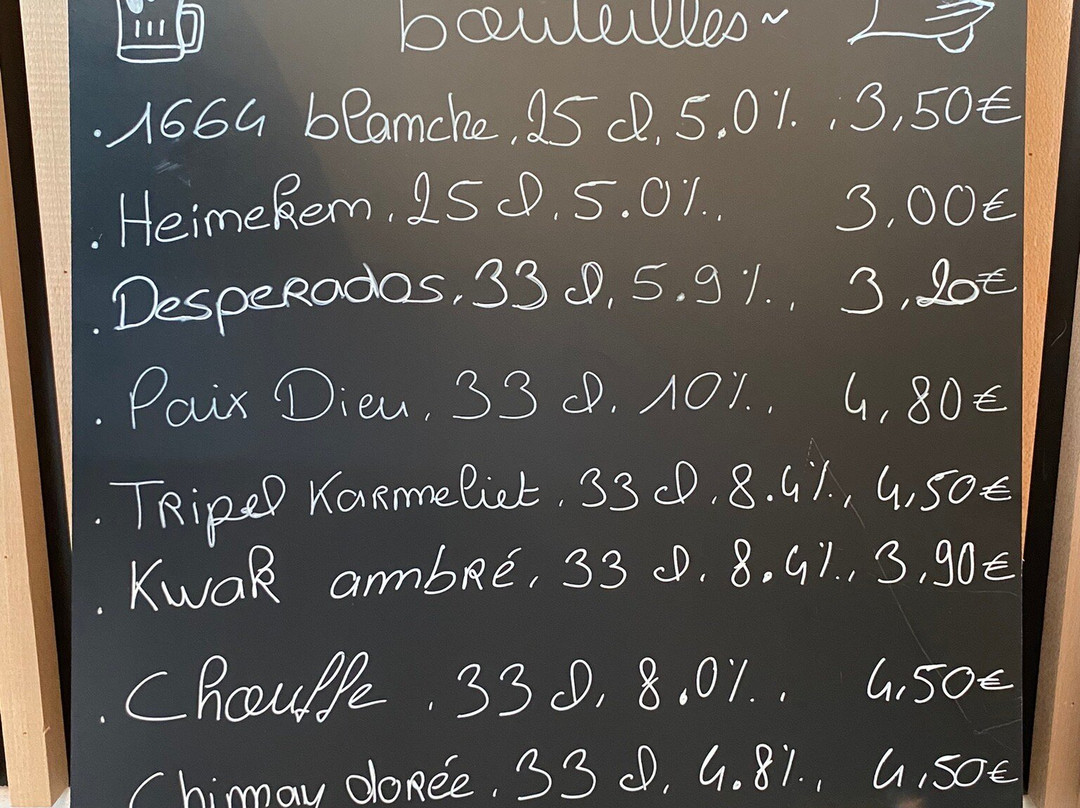 bouteilles~
. 1664 blanche, 25 cl, 5.0%. , 3,50€
. Heineken. 25 cl. 5.0%. 3,00€
. Desperados. 33 cl, 5.9%. , 3,20€
. Paix Dieu, 33 cl. 10%. 4,80€
. Tripel Karmeliet. 33 cl. 8.4%, 4,50€
. Kwak ambré, 33 cl. 8.4%. 3,90€
. Chouffe. 33 cl, 8.0%. . 4,50€
Chimay dorée. 33 cl, 4.8%. , 4,50€